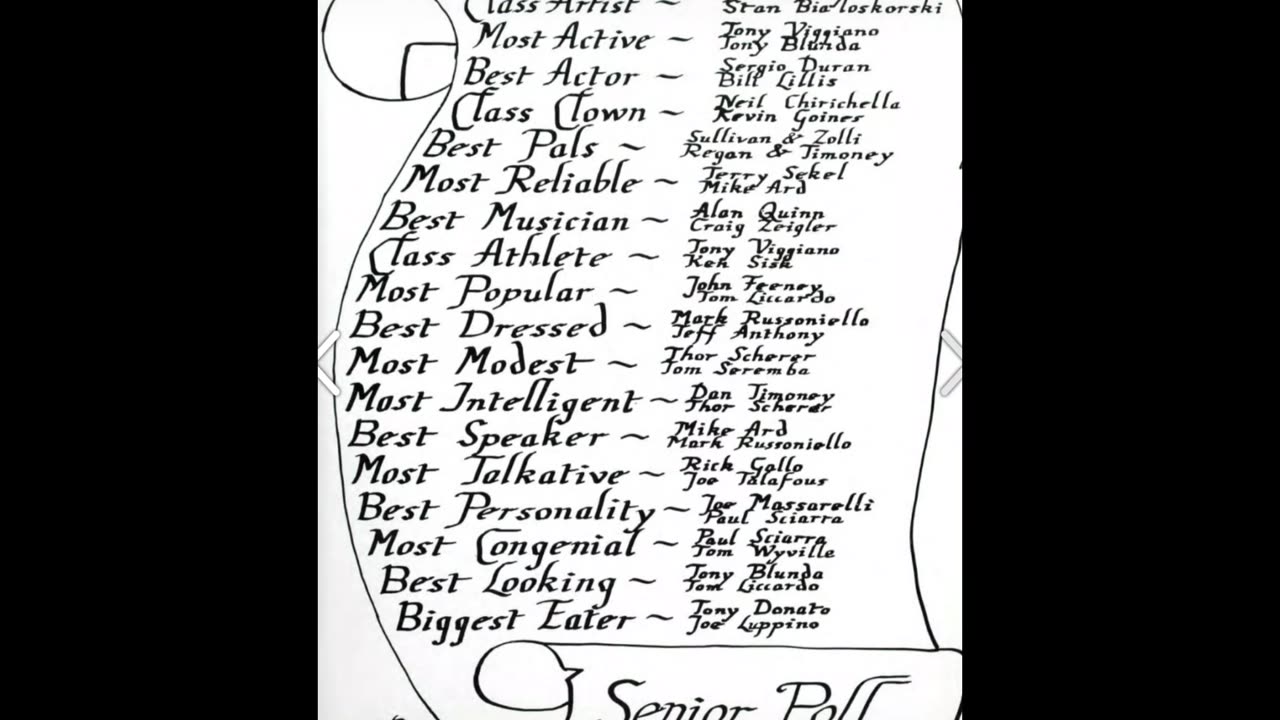 Class Artist ~ Stan Bialoskorski
Most Active ~ Tony Viggiano
Tony Blunda
Best Actor ~ Sergio Duran
Bill Lillis
Class Clown ~ Neil Chirichella
Kevin Goines
Best Pals ~ Sullivan & Zolli
Regan & Timoney
Most Reliable ~ Terry Sekel
Mike Ard
Best Musician ~ Alan Quinn
Craig Zeigler
Class Athlete ~ Tony Viggiano
Ken Sisk
Most Popular ~ John Feeney
Tom Liccardo
Best Dressed ~ Mark Russoniello
Jeff Anthony
Most Modest ~ Thor Scherer
Tom Seremba
Most Intelligent ~ Dan Timoney
Thor Scherer
Best Speaker ~ Mike Ard
Mark Russoniello
Most Talkative ~ Rick Gallo
Joe Talafous
Best Personality ~ Joe Massarelli
Paul Sciarra
Most Congenial ~ Paul Sciarra
Tom Wyville
Best Looking ~ Tony Blunda
Tom Liccardo
Biggest Eater ~ Tony Donato
Joe Luppino
Senior Poll